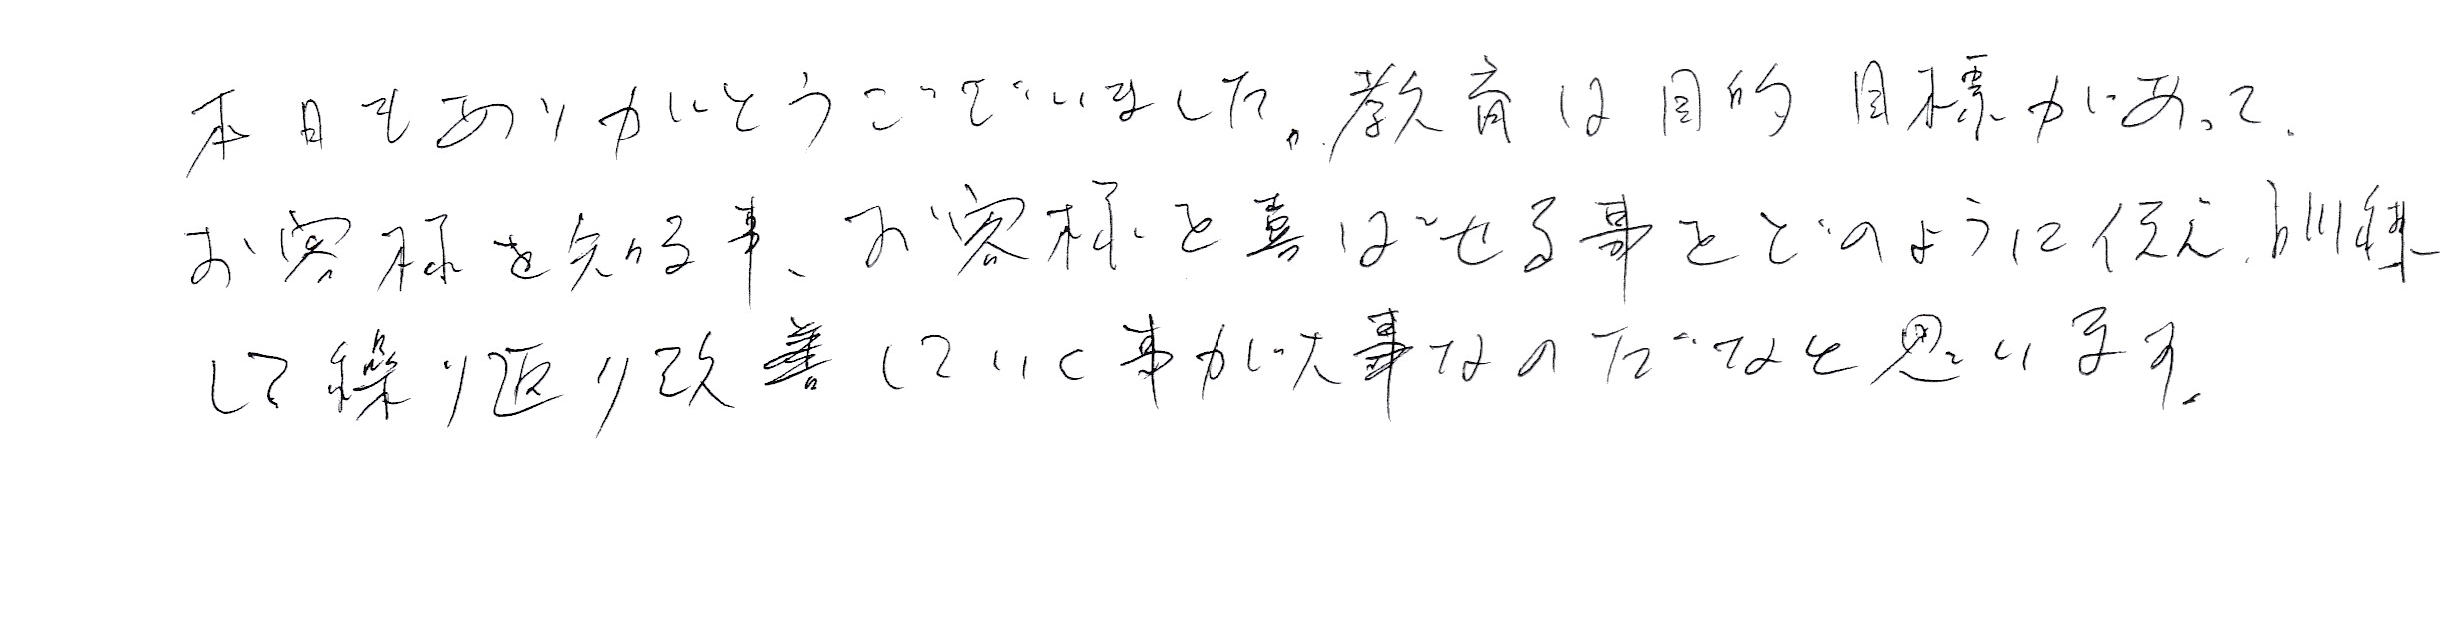 本日もありがとうございました。教育は目的 目標があって、
お客様を知る事、お客様を喜ばせる事をどのように伝え、訓練
して繰り返り改善していく事が大事なのだなと思います。